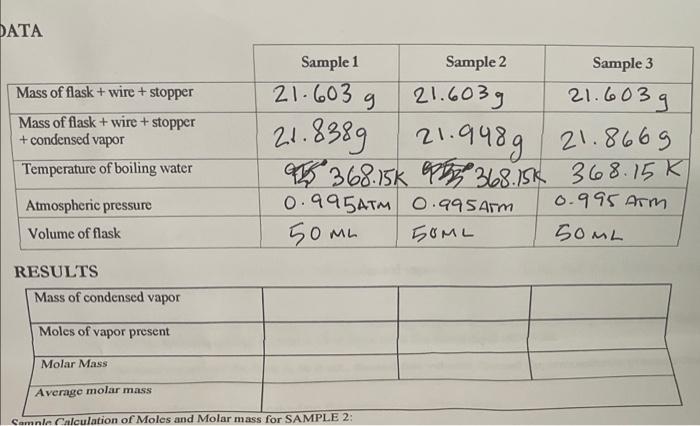 DATA
Sample 1 Sample 2 Sample 3
Mass of flask + wire + stopper 21.603 g 21.603g 21.603g
Mass of flask + wire + stopper
+ condensed vapor 21.838g 21.948g 21.866g
Temperature of boiling water 368.15K 368.15K 368.15 K
Atmospheric pressure 0.995ATM 0.995ATM 0.995 ATM
Volume of flask 50 ML 50ML 50 ML
RESULTS
Mass of condensed vapor
Moles of vapor present
Molar Mass
Average molar mass
Sample Calculation of Moles and Molar mass for SAMPLE 2: